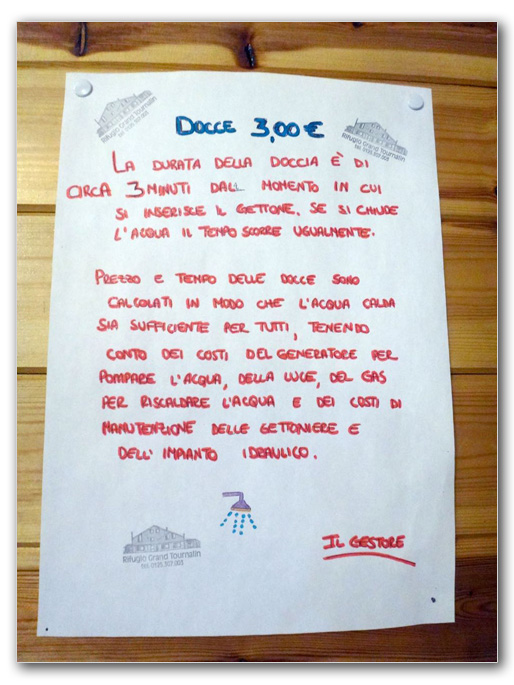 DOCCE 3,00 €
LA DURATA DELLA DOCCIA È DI
CIRCA 3 MINUTI DAL MOMENTO IN CUI
SI INSERISCE IL GETTONE. SE SI CHIUDE
L'ACQUA IL TEMPO SCORRE UGUALMENTE.
PREZZO E TEMPO DELLE DOCCE SONO
CALCOLATI IN MODO CHE L'ACQUA CALDA
SIA SUFFICIENTE PER TUTTI, TENENDO
CONTO DEI COSTI DEL GENERATORE PER
POMPARE L'ACQUA, DELLA LUCE, DEL GAS
PER RISCALDARE L'ACQUA E DEI COSTI DI
MANUTENZIONE DELLE GETTONIERE E
DELL'IMPIANTO IDRAULICO.
IL GESTORE
Rifugio Grand Tournalin
Rifugio Grand Tournalin
Rifugio Grand Tournalin